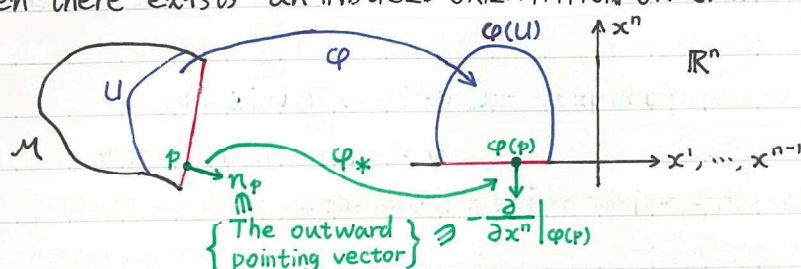 then there exists an INDUCED ORIENTATION on ∂
φ φ(U) xⁿ ℝⁿ
U
M p φ* φ(p) x¹, ..., xⁿ⁻¹
nₚ
∩
{ The outward pointing vector } ∋ -∂/∂xⁿ|φ(p)